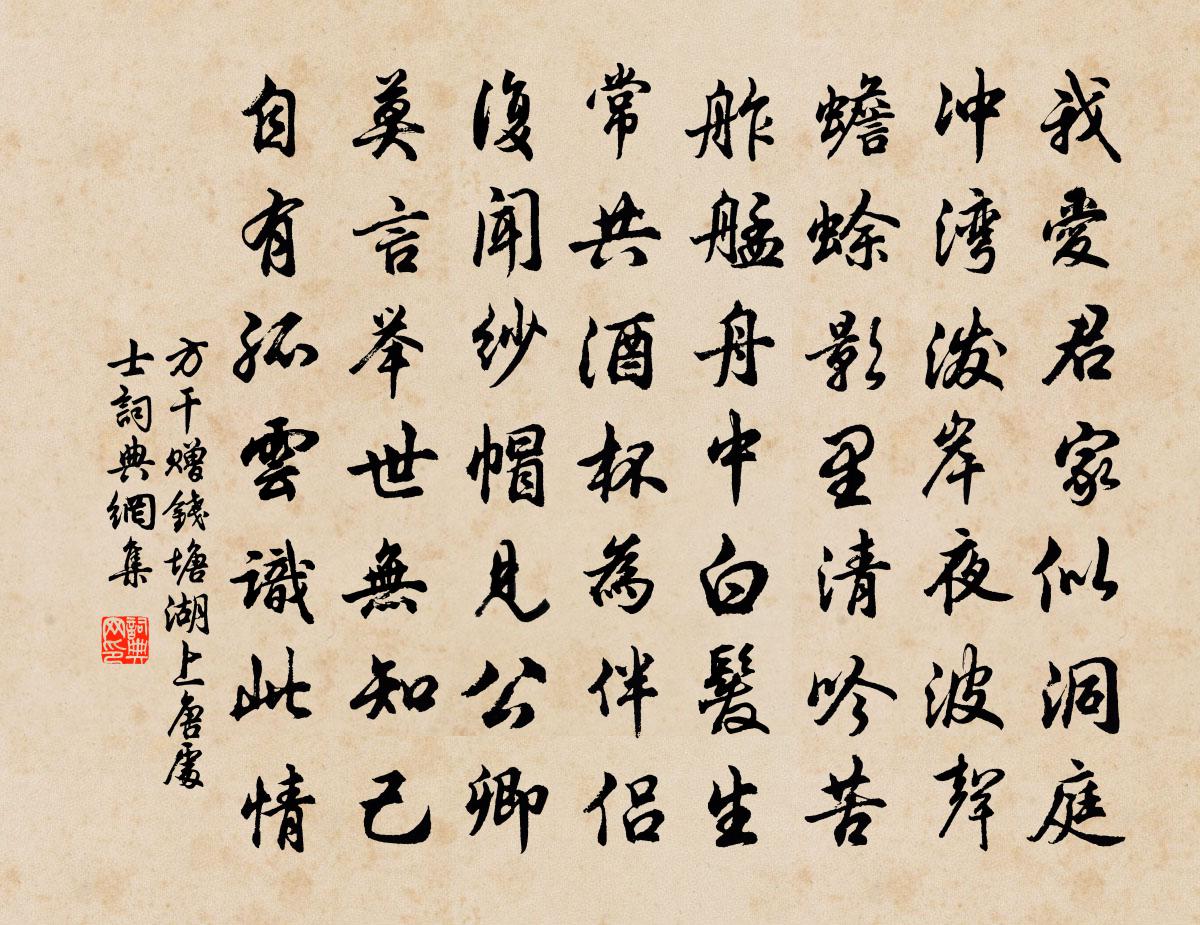 我愛君家似洞庭
冲湾潑岸夜波聲
蟾蜍影里清吟苦
舴艋舟中白髮生
常共酒杯為伴侶
復聞紗帽見公卿
莫言举世無知己
自有孤雲識此情
方干赠錢塘湖上唐處
士詞典網集
詞典
网印